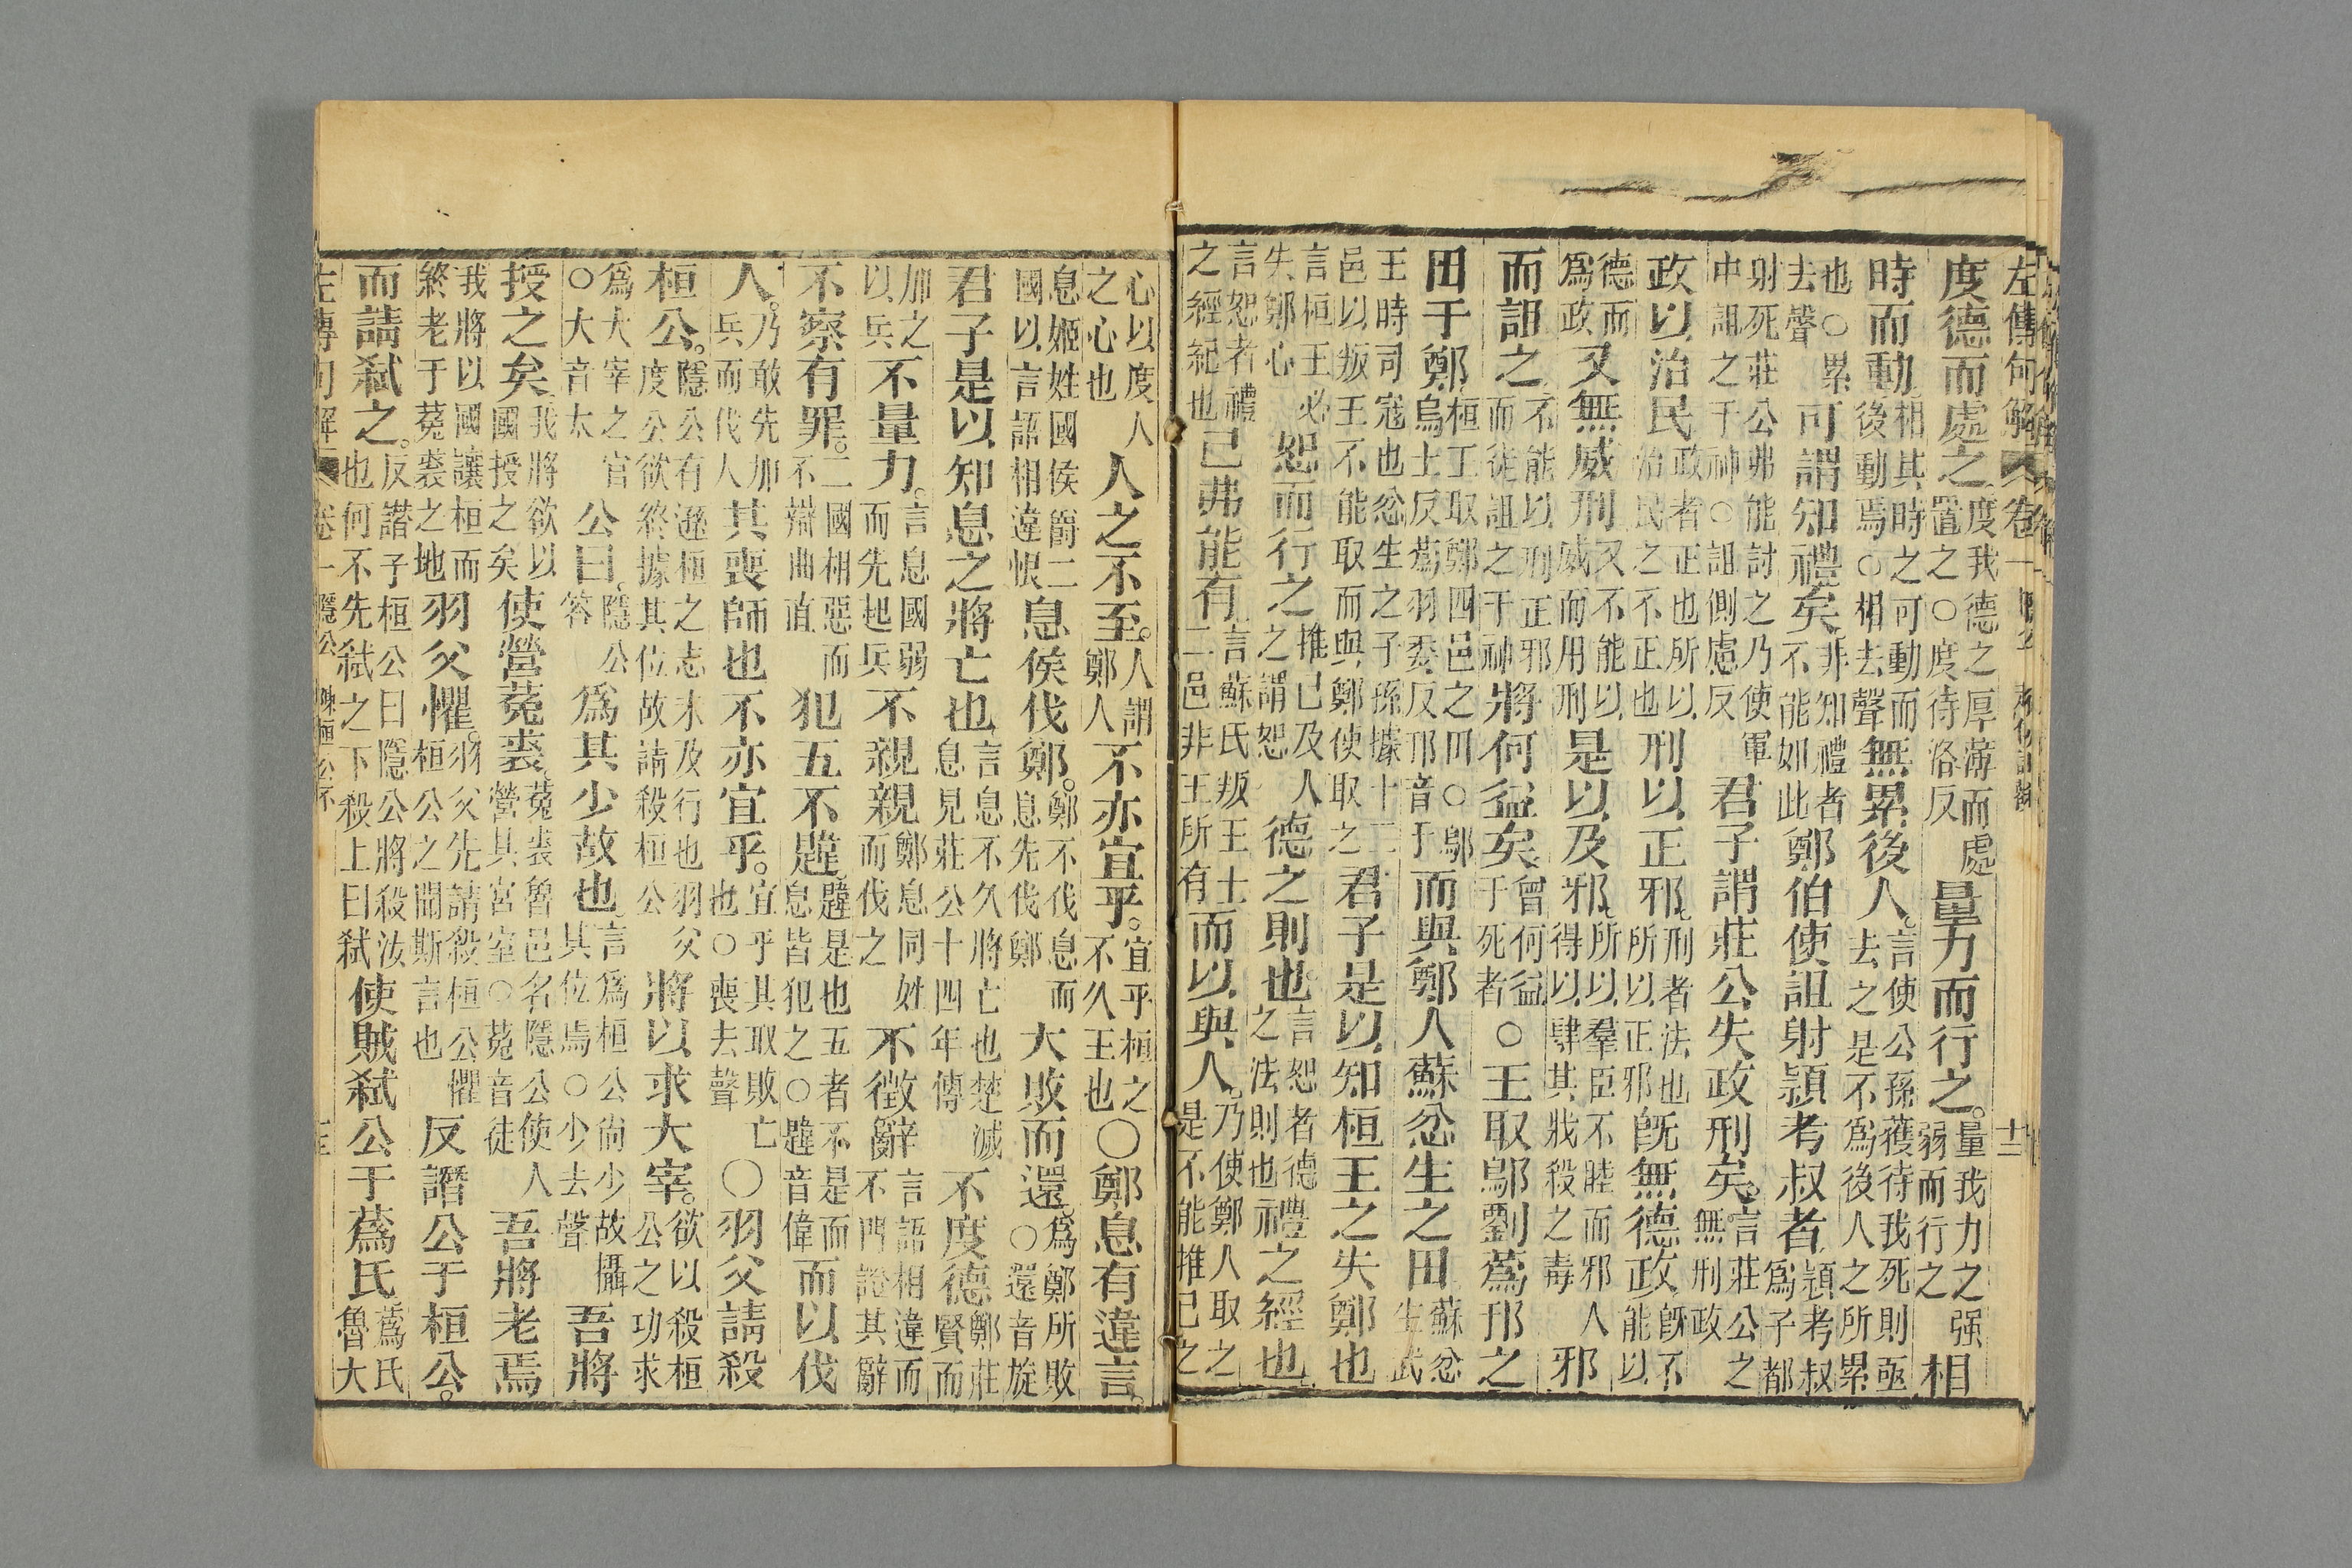 左傳句解 卷一 十二
度德而處之度我德之厚薄而處置之○度待洛反量力而行之。量我力之强弱而行之相
時而動相其時之可動而後動焉○相去聲無累後人。言使公孫獲待我死則亟去之是不爲後人之所累
也○累去聲可謂知禮矣非知禮者不能如此鄭伯使詛射頴考叔者頴考叔爲子都
射死莊公弗能討之乃使軍中詛之于神○詛側慮反君子謂莊公失政刑矣。言莊公之無刑政
政以治民政者正也所以治民之不正也刑以正邪刑者法也所以正邪旣無德政旣不能以
德而爲政又無威刑又不能以威而用刑是以及邪所以羣臣不睦而邪人得以肆其戕殺之毒邪
而詛之不能以刑正邪而徒詛之于神將何益矣曾何益于死者○王取鄔劉蒍邘之
田于鄭桓王取鄭四邑之田○鄔烏士反蒍羽委反邘音于而與鄭人蘇忿生之田蘇忿生武
王時司寇也忿生之子孫據十二邑以叛王不能取而與鄭使取之君子是以知桓王之失鄭也
言桓王必失鄭心恕而行之推己及人之謂恕德之則也言恕者德之法則也禮之經也
言恕者禮之經紀也己弗能有言蘇氏叛王十二邑非王所有而以與人。乃使鄭人取之是不能推己之
心以度人之心也人之不至。人謂鄭人不亦宜乎。宜乎桓之不久王也○鄭息有違言。
息姬姓國侯爵二國以言語相違恨息侯伐鄭。鄭不伐息而息先伐鄭大敗而還爲鄭所敗○還音旋
君子是以知息之將亡也言息不久將亡也楚滅息見莊公十四年傳不度德鄭莊賢而
加之以兵不量力。言息國弱而先起兵不親親鄭息同姓而伐之不徵辭言語相違而不門證其辭
不察有罪。二國相惡而不辯曲直犯五不韙韙是也五者不是而息皆犯之○韙音偉而以伐
人。乃敢先加兵而伐人其喪師也不亦宜乎。宜乎其取敗亡也○喪去聲○羽父請殺
桓公。隱公有遜桓之志未及行也羽父度公欲終據其位故請殺桓公將以求大宰。欲以殺桓公之功求
爲大宰之官○大音太公曰。隱公答爲其少故也言爲桓公尙少故攝其位焉○少去聲吾將
授之矣我將欲以國授之矣使營菟裘菟裘魯邑名隱公使人營其宮室○菟音徒吾將老焉
我將以國讓桓而終老于菟裘之地羽父懼。羽父先請殺桓公懼桓公之聞斯言也反譖公于桓公。
而請弑之。反譖子桓公曰隱公將殺汝也何不先弑之下殺上曰弑使賊弑公于蒍氏蒍氏魯大
左傳句解 卷一 隱公